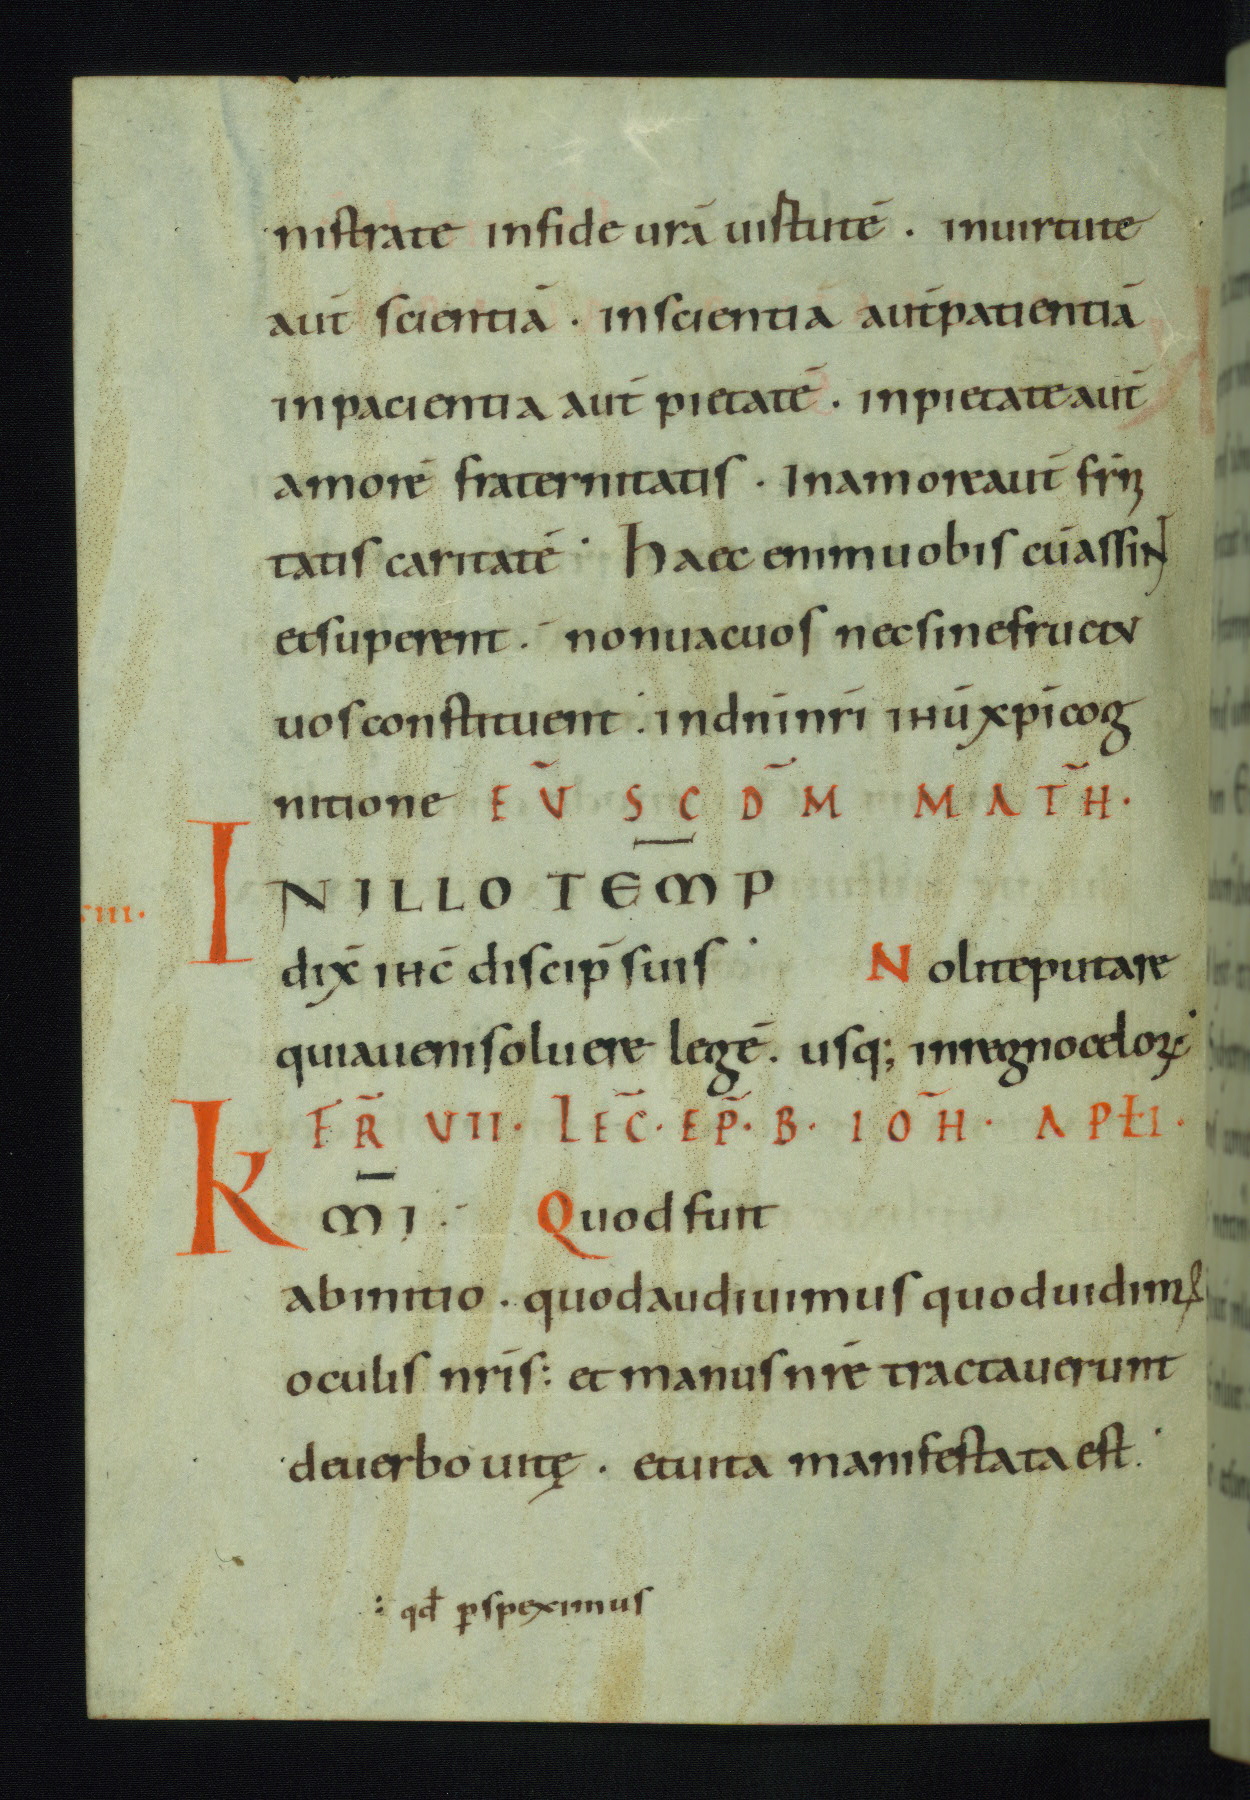 nistrate in fide urā uirtutē . in uirtute
aut̄ scientiā . in scientia aut̄ patientiā
in pacientia aut̄ pietatē . in pietate aut̄
amorē fraternitatis . In amore aut̄ frn̄
tatis caritatē · Haec enim uobis cū assin̄
et superent . non uacuos nec sine fructu
uos constituent . in dn̄i nr̄i ihū xp̄i cog
nitione EV̄ SCD̄M MATH̄ ·
IN ILLO TEMP̄
xiii.
dix̄ ihc̄ discip̄ suis · Nolite putare
quia ueni soluere legē . usq; in regno celoꝝ
FR̄ VII · LEC̄ · EP̄ · B · IOH̄ · APŁI ·
K̄mı · Quod fuit
ab initio . quod audiuimus quod uidim⁊
oculis nr̄is : et manus nr̄e tractauerunt
de uerbo uitę . et uita manifestata est .
: qđ ꝑspeximus